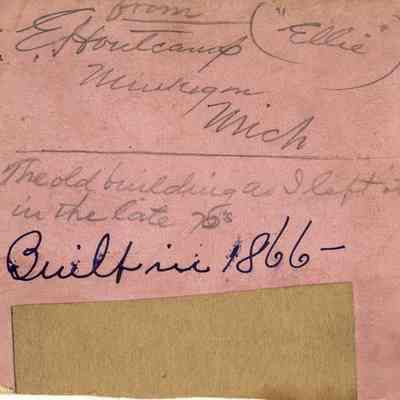 from
E Houtcamp ("Ellie")
Muskegon
Mich
The old building as I left it
in the late 75s
Built in 1866-